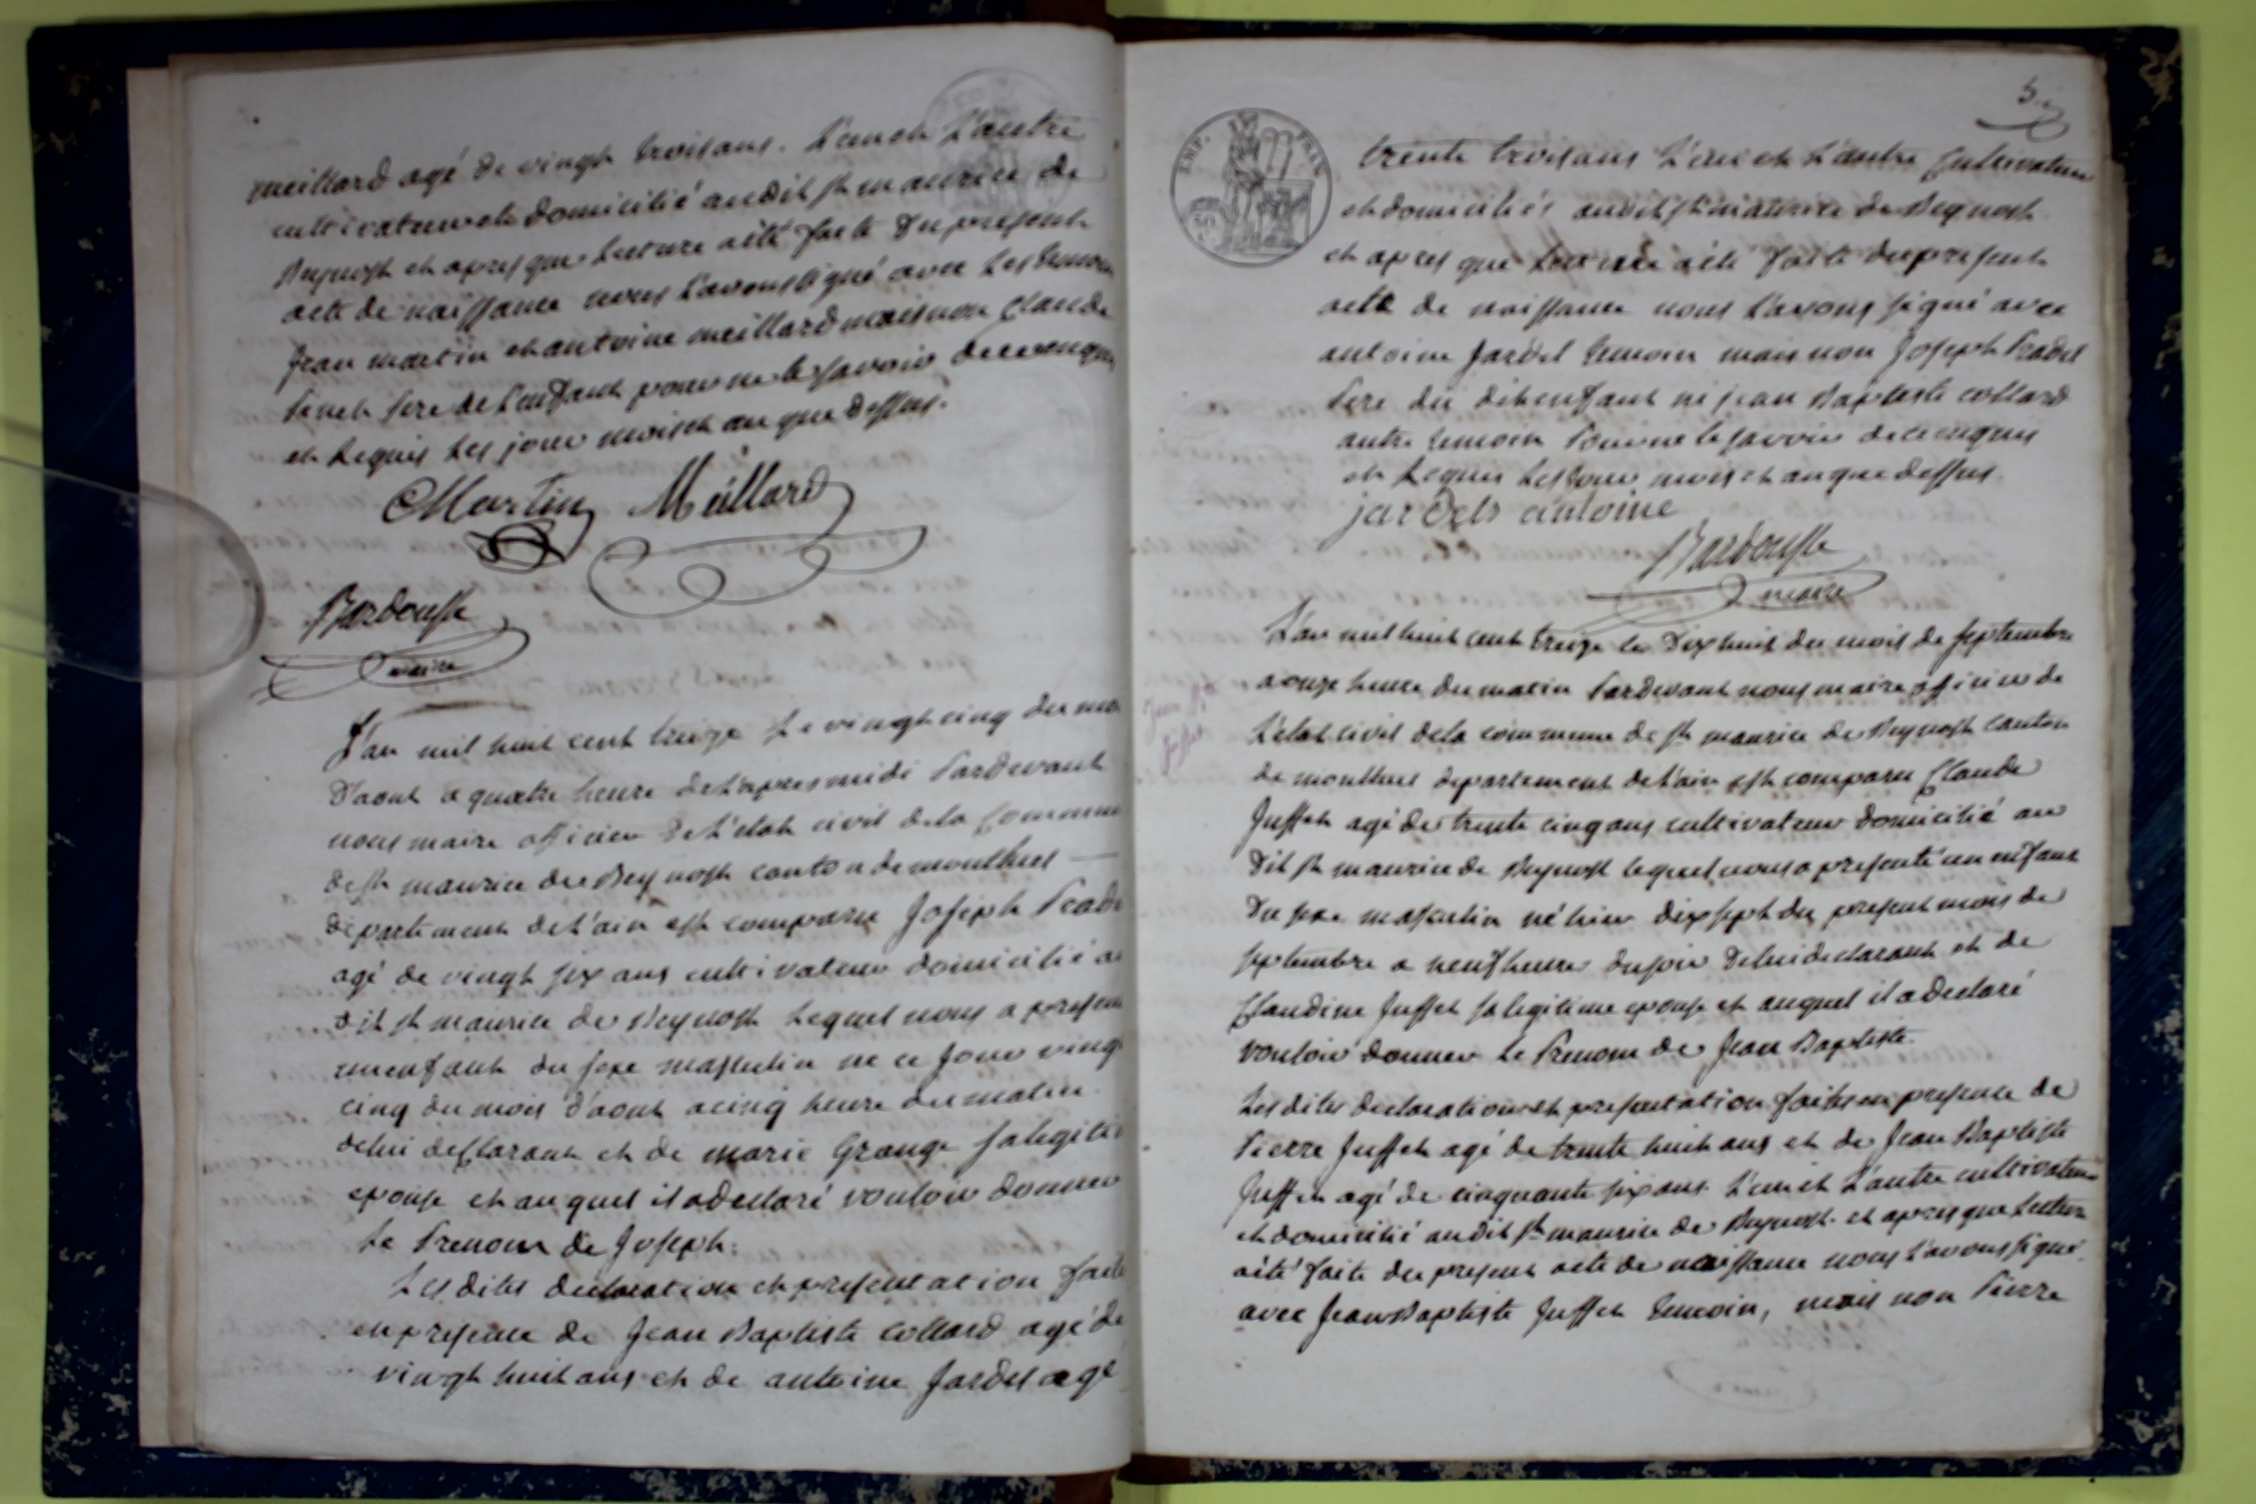 meillard agé de vingt troisans. L'un et L'autre
cultivateurs et domicilié audit st maurice de
Beynost et apres que Lecture aété faite du present
acte de naissance nous L'avons signé avec Les temoins
Jean martin et antoine meillard mais non Claude
Pere de L'enfant pour ne le savoir de ce enquis
et Requis Les jour mois et an que dessus.
Martin Meillard
Bardousse
maire
L'an mil huit cent treize Le vingt cinq du mo
D'aout a quatre heure de L'apres midi Pardevant
nous maire officier de L'etat civil de la Commune
de st maurice de Beynost canton de montluel
departement de L'ain est comparu Joseph Prade
agé de vingt six ans cultivateur domicilié au
dit st maurice de Beynost Lequel nous a presen
un enfant du sexe masculin ne ce Jour vingt
cinq du mois d'aout a cinq heure du matin
de lui declarant et de marie Grange sa legiti
epouse et au quel il a declaré vouloir donner
Le Prenom de Joseph.
Les dites declaration et presentation faite
en presence de Jean Baptiste Collard agé de
vingt huit ans et de antoine Jardel agé
5
EMP. FRAN
trente troisans L'un et L'autre Cultivateurs
et domiciliés audit st maurice de Beynost
et apres que Lecture aété faite du present
acte de naissance nous L'avons signé avec
antoine Jardel temoin mais non Joseph Pradel
Pere du dit enfant ni jean Baptiste collard
autre temoin Pour ne le savoir de ce enquis
et Requis Les jour mois et an que dessus.
jardels antoine
Bardousse
maire
L'an mil huit cent treize le Dix huit du mois de septembre
a onze heure du matin Pardevant nous maire officier de
L'etat civil de la commune de st maurice de Beynost canton
de montluel departement de L'ain est comparu Claude
Juffet agé de trente cinq ans cultivateur domicilié au
Dit st maurice de Beynost lequel nous a presenté un enfant
Du sexe masculin né hier dix sept du present mois de
septembre a neuf heure du soir De lui declarant et de
Claudine Juffet sa legitime epouse et auquel il a declaré
vouloir donner Le Prenom de Jean Baptiste.
Les dites declaration et presentation faites en presence de
Pierre Juffet agé de trente huit ans et de Jean Baptiste
Juffet agé de cinquante six ans L'un et L'autre cultivateurs
et domicilié audit st maurice de Beynost. et apres que Lecture
aété faite du present acte de naissance nous L'avons signé
avec Jean Baptiste Juffet temoin, mais non Pierre